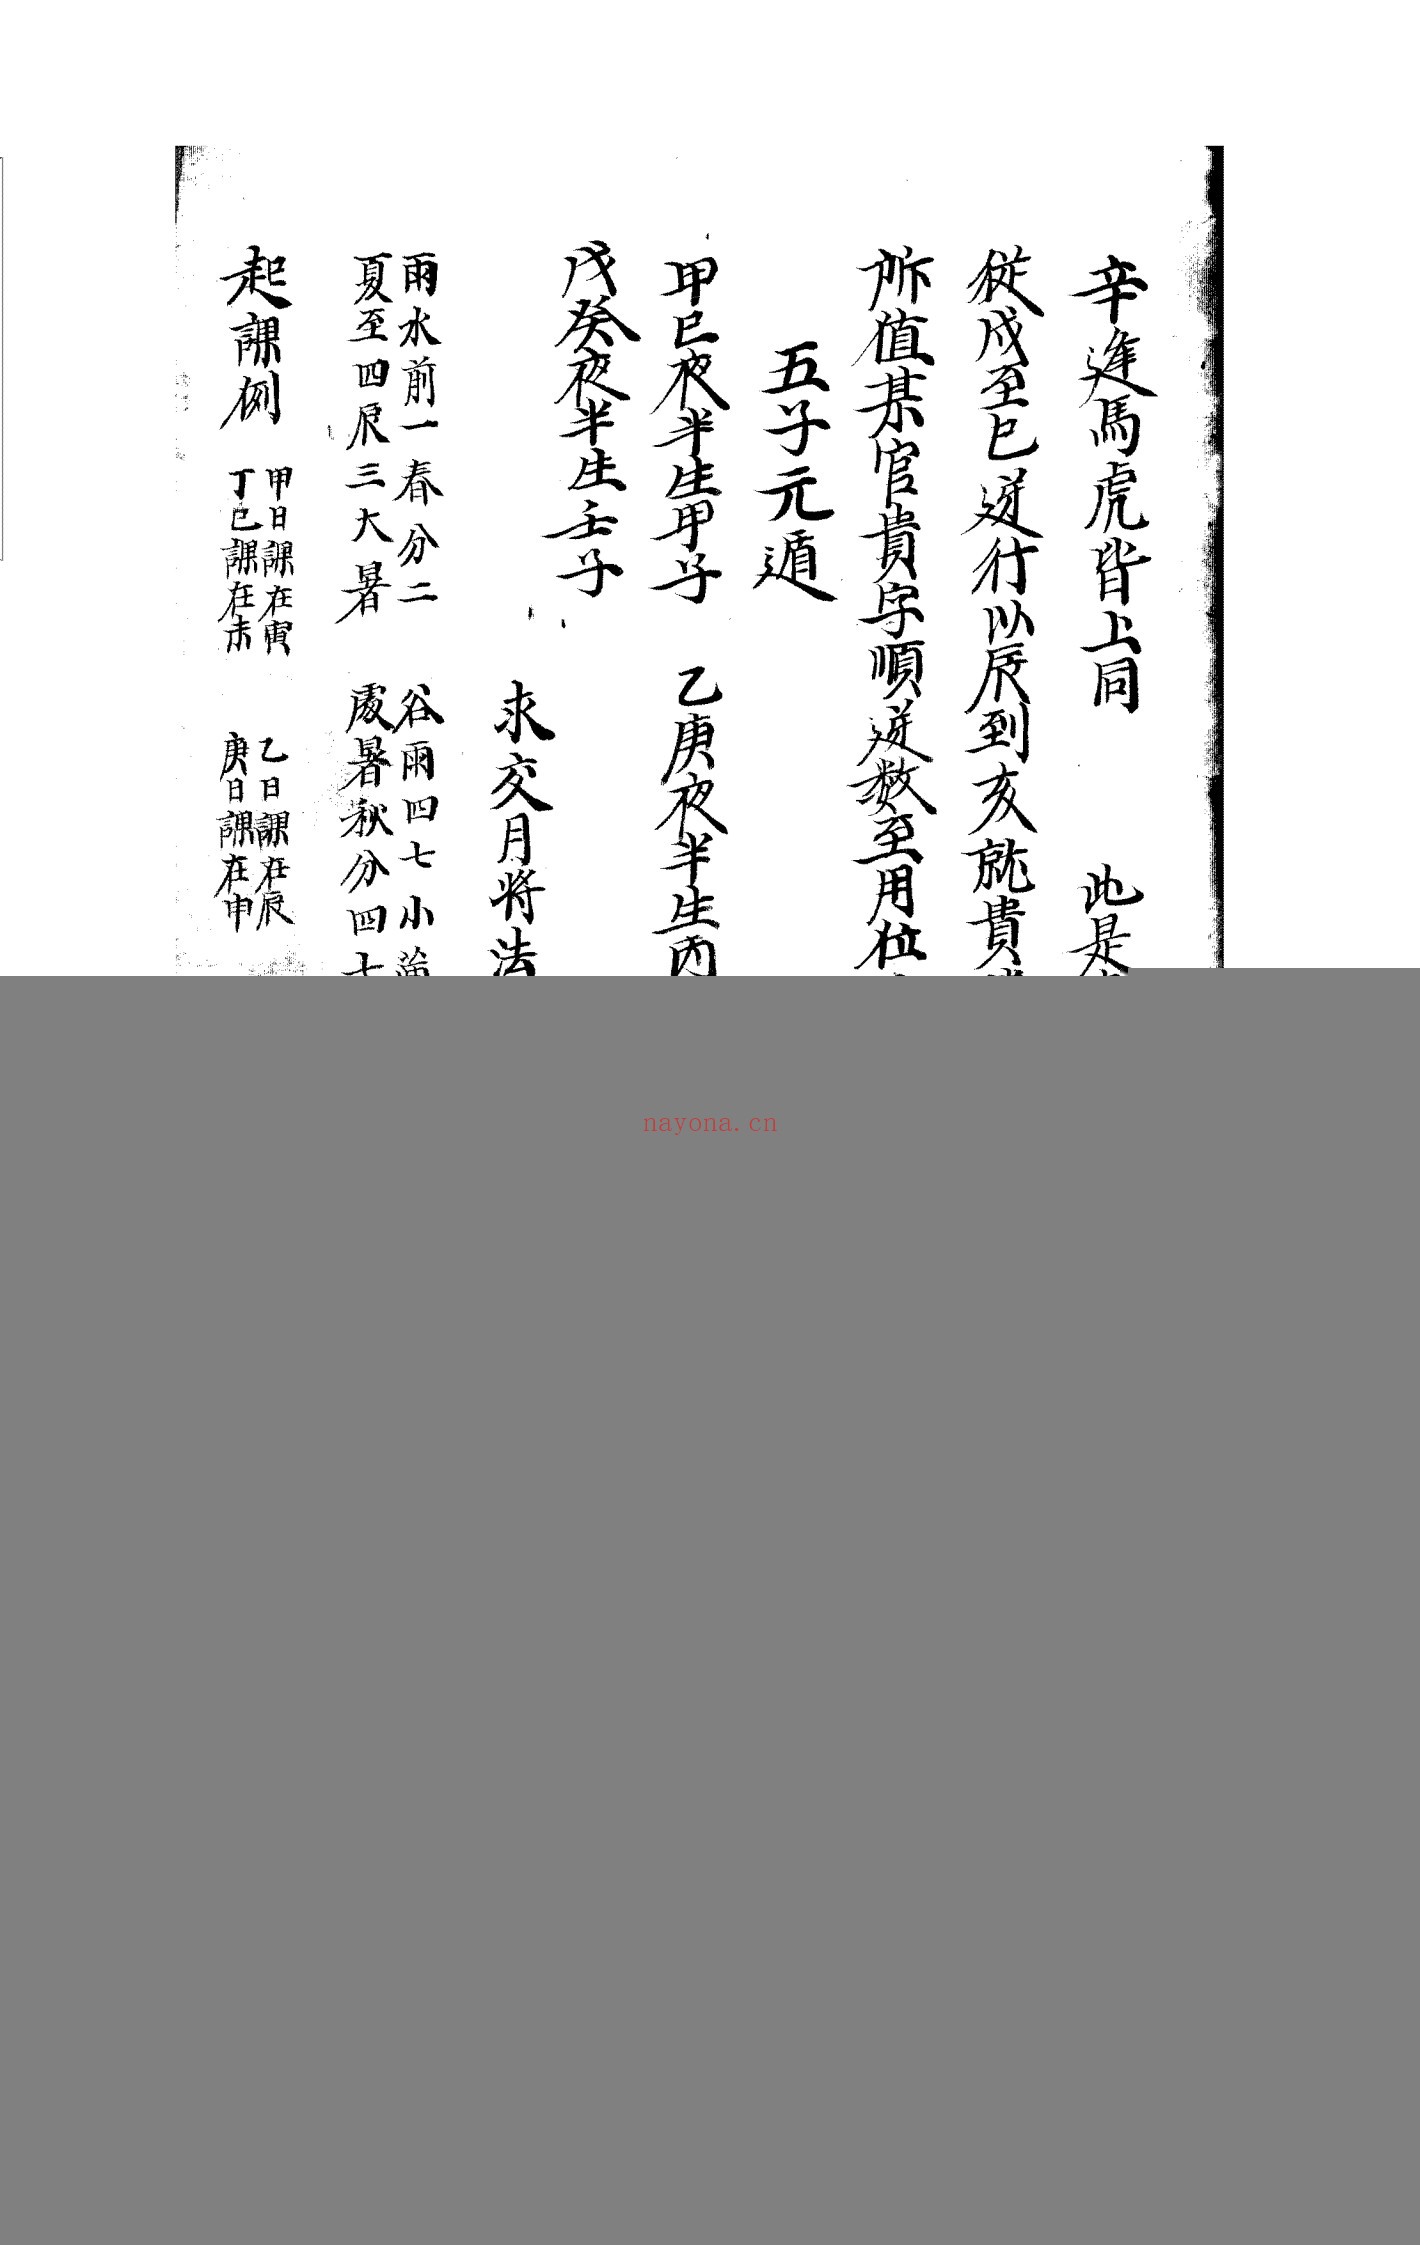 辛逢馬虎皆上同　此是
從戌至巳逆行以辰到亥就貴
所值某官貴字順逆數至用位
五子元遁
甲巳夜半生甲子　乙庚夜半生丙
戊癸夜半生壬子
求交月將法
雨水前一春分二　谷雨四七小滿
夏至四辰三大暑　處暑秋分四十
起課例
甲日課在寅　乙日課在辰
丁巳課在未　庚日課在申
nayona.cn